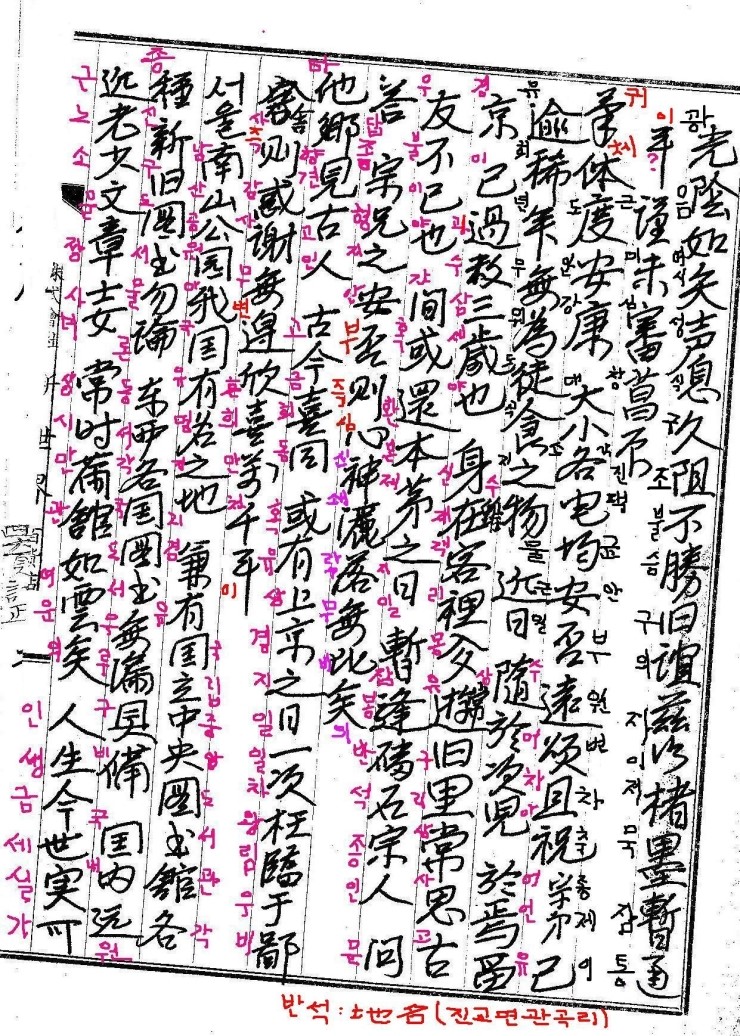 光陰如矢声息久阻不勝旧誼玆以楮墨暫通
광음여시성식구조불승구의자이저묵잠통
耳 謹未審菖不
이? 근미심창
体度安康 大小各宅均安否遠頌且祝 宗弟已
귀체도만강대소각진택균안부원변차축종제이
逾稀年無為徒食之物 近日 随於次児 於焉留
유희년무위도식지물근일수어차아어언유
京 已過数三歳也 身在客裡夢遊旧里常思古
경이과수삼세야신재객리몽유구리상사고
友不已也 間或還本第之日 暫逢磻石宗人 问
우불이야간혹환본제지일잠봉반석종인문
答 宗兄之安否則心神灑落無比矣
답종형지안부즉심신쇄락무비의
他郷見古人 古今喜同 或有上京之日一次枉臨于鄙
타향견고인고금희동혹유상경지일일차왕림우비
舍則感謝無邊欣喜万千耳
사즉감사무변환희만천이
서울南山公園我国有名之地 兼有国立中央圖书館各
남산공원아국유명지지겸유국립중앙도서관각
種新旧圖书勿論 东西各国圖书無漏具備 国内远
종신구도서물론동서각국도서무루구비국내원
近老少文章士女 常时满館如雲矣 人生今世実可
근노소문장사녀상시만관여운의인생금세실가
반석:地名(진교면관곡리)